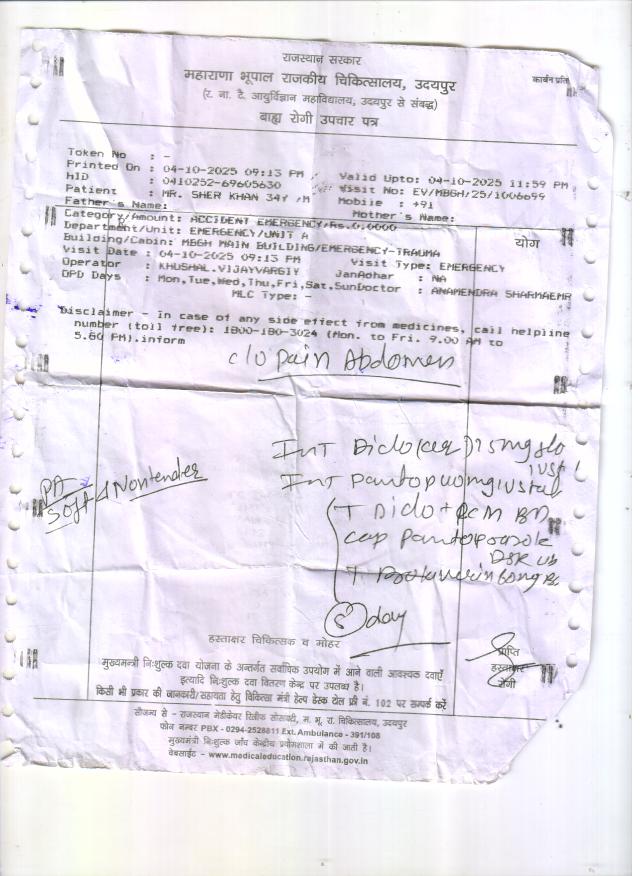 राजस्थान सरकार
महाराणा भूपाल राजकीय चिकित्सालय, उदयपुर
कार्बन प्रति
(र. ना. टै. आयुर्विज्ञान महाविद्यालय, उदयपुर से संबद्ध)
बाह्य रोगी उपचार पत्र
Token No : -
Printed On : 04-10-2025 09:13 PM Valid Upto: 04-10-2025 11:59 PM
HID : 0410252-69605630 Visit No: EV/MBGH/25/1006699
Patient : MR. SHER KHAN 34Y /M Mobile : +91
Father's Name: Mother's Name:
Category/Amount: ACCIDENT EMERGENCY/Rs.0.0000
Department/Unit: EMERGENCY/UNIT A
योग
Building/Cabin: MBGH MAIN BUILDING/EMERGENCY-TRAUMA
Visit Date : 04-10-2025 09:13 PM Visit Type: EMERGENCY
Operator : KHUSHAL.VIJAYVARGIY JanAdhar : NA
OPD Days : Mon,Tue,Wed,Thu,Fri,Sat,SunDoctor : ANAMENDRA SHARMAEMR
MLC Type: -
Disclaimer - In case of any side effect from medicines, call helpline
number (toll free): 1800-180-3024 (Mon. to Fri. 9.00 AM to
5.60 PM).inform
c/o Pain Abdomen
Diclo 75mg
PA
Soft Nontender
T Diclo + PCM BD
cap Pantoprazole
DSR
day
हस्ताक्षर चिकित्सक व मोहर
प्राप्ति
हस्ताक्षर
रोगी
मुख्यमन्त्री निःशुल्क दवा योजना के अन्तर्गत सर्वाधिक उपयोग में आने वाली आवश्यक दवाएँ
इत्यादि निःशुल्क दवा वितरण केन्द्र पर उपलब्ध है।
किसी भी प्रकार की जानकारी/सहायता हेतु चिकित्सा मंत्री हेल्प डेस्क टोल फ्री नं. 102 पर सम्पर्क करें
सौजन्य से - राजस्थान मेडीकेयर रिलीफ सोसायटी, म. भू. रा. चिकित्सालय, उदयपुर
फोन नम्बर PBX - 0294-2528811 Ext. Ambulance - 391/108
मुख्यमन्त्री निःशुल्क जाँच केन्द्रीय प्रयोगशाला में की जाती है।
वेबसाईट - www.medicaleducation.rajasthan.gov.in